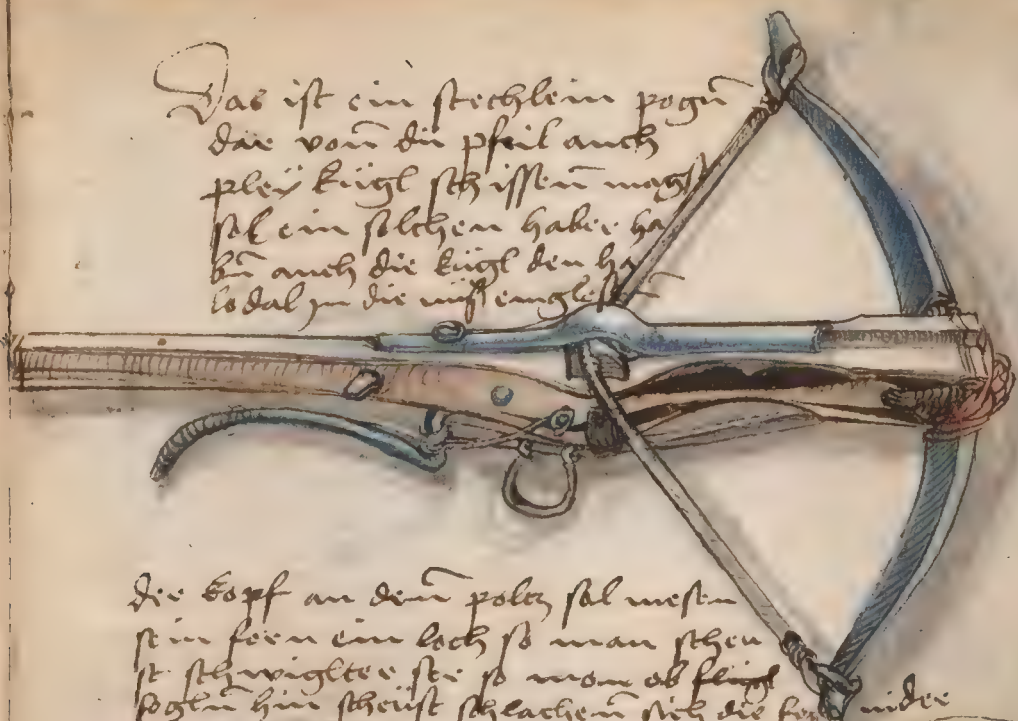 Das ist ein stechlein pogn̄
dar von̄ du pfeil auch
pleÿ kugl schissen̄ magst
sol ein solchen haber ha
bn̄ auch die kugl den ha
lodal in die nuss
der kopf an dem̄ poltz sol
sein foren ein loch so man scheu
st schwiglter so man ob
fogln̄ hin scheust schlachen̄ sich die nider